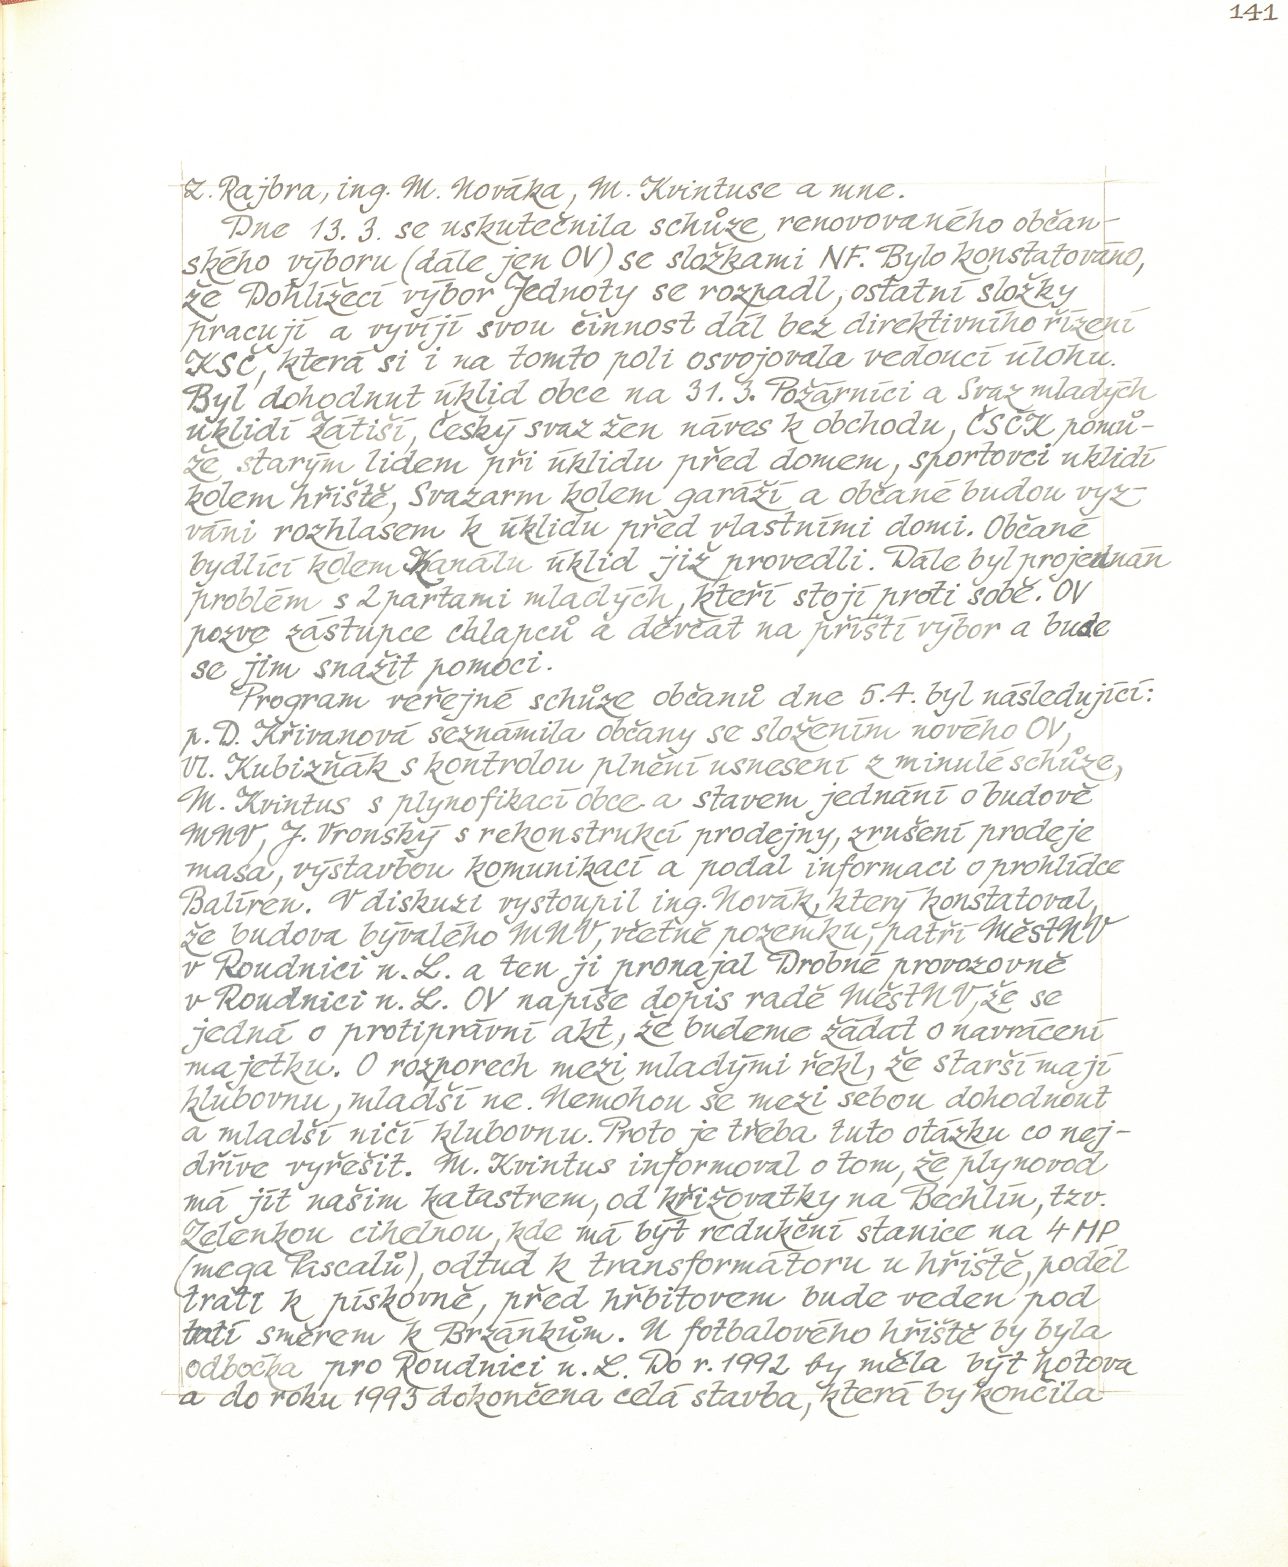 141
Z. Rajbra, ing. M. Nováka, M. Kvintuse a mne.
Dne 13. 3. se uskutečnila schůze renovovaného občan-
ského výboru (dále jen OV) se složkami NF. Bylo konstatováno,
že Dohlížecí výbor Jednoty se rozpadl, ostatní složky
pracují a vyvíjí svou činnost dál bez direktivního řízení
KSČ, která si i na tomto poli osvojovala vedoucí úlohu.
Byl dohodnut úklid obce na 31. 3. Požárníci a Svaz mladých
uklidí Zátiší, Český svaz žen náves k obchodu, ČSČK pomů-
že starým lidem při úklidu před domem, sportovci uklidí
kolem hřiště, Svazarm kolem garáží a občané budou vyz-
váni rozhlasem k úklidu před vlastními domi. Občané
bydlící kolem Kanálu úklid již provedli. Dále byl projednán
problém s 2 partami mladých, kteří stojí proti sobě. OV
pozve zástupce chlapců a děvčat na příští výbor a bude
se jim snažit pomoci.
Program veřejné schůze občanů dne 5. 4. byl následující:
p. D. Křivanová seznámila občany se složením nového OV,
Vl. Kubizňák s kontrolou plnění usnesení z minulé schůze,
M. Kvintus s plynofikací obce a stavem jednání o budově
MNV, J. Vronský s rekonstrukcí prodejny, zrušení prodeje
masa, výstavbou komunikací a podal informaci o prohlídce
Balíren. V diskuzi vystoupil ing. Novák, který konstatoval,
že budova bývalého MNV, včetně pozemku, patří MěstNV
v Roudnici n. L. a ten ji pronajal Drobné provozovně
v Roudnici n. L. OV napíše dopis radě MěstNV, že se
jedná o protiprávní akt, že budeme žádat o navrácení
majetku. O rozporech mezi mladými řekl, že starší mají
klubovnu, mladší ne. Nemohou se mezi sebou dohodnout
a mladší ničí klubovnu. Proto je třeba tuto otázku co nej-
dříve vyřešit. M. Kvintus informoval o tom, že plynovod
má jít našim katastrem, od křižovatky na Bechlín, tzv.
Zelenkou cihelnou, kde má být redukční stanice na 4 MP
(mega Pascalů), odtud k transformátoru u hřiště, podél
trati k pískovně, před hřbitovem bude veden pod
tratí směrem k Brzánkům. U fotbalového hřiště by byla
odbočka pro Roudnici n. L. Do r. 1992 by měla být hotova
a do roku 1993 dokončena celá stavba, která by končila